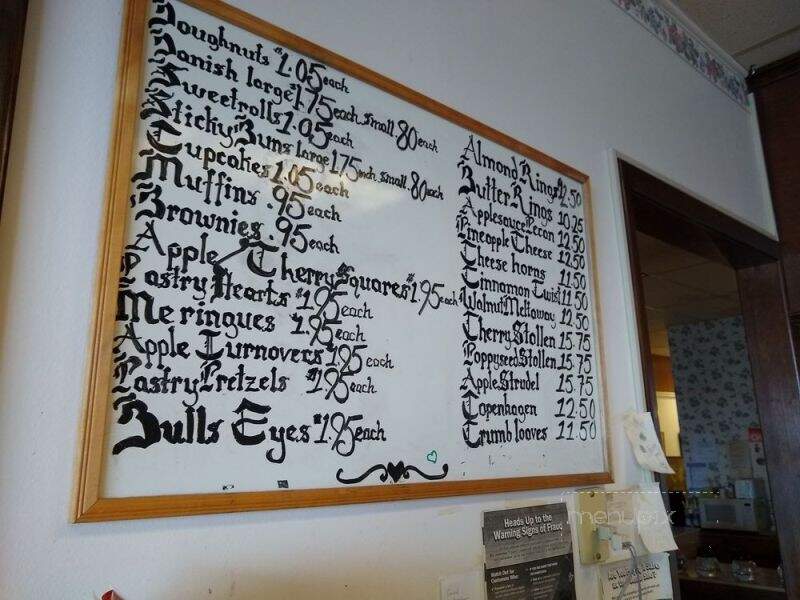 Doughnuts $1.05 each
Danish large $1.75 each small .80 each
Sweetrolls 1.05 each
Sticky Buns large 1.75 each small .80 each
Cupcakes 1.05 each
Muffins .95 each
Brownies .95 each
Apple/Cherry Squares $1.95 each
Pastry Hearts $1.95 each
Meringues $1.95 each
Apple Turnovers $1.95 each
Pastry Pretzels $1.95 each
Bulls Eyes $1.95 each
Almond Rings 12.50
Butter Rings 10.25
Applesauce Pecan 12.50
Pineapple Cheese 12.50
Cheese horns 11.50
Cinnamon Twist 11.50
Walnut Meltaway 12.50
Cherry Stollen 15.75
Poppyseed Stollen 15.75
Apple Strudel 15.75
Copenhagen 12.50
Crumb looves 11.50
Heads Up to the
Warning Signs of Fraud
Watch Out for
Customers Who:
menupix